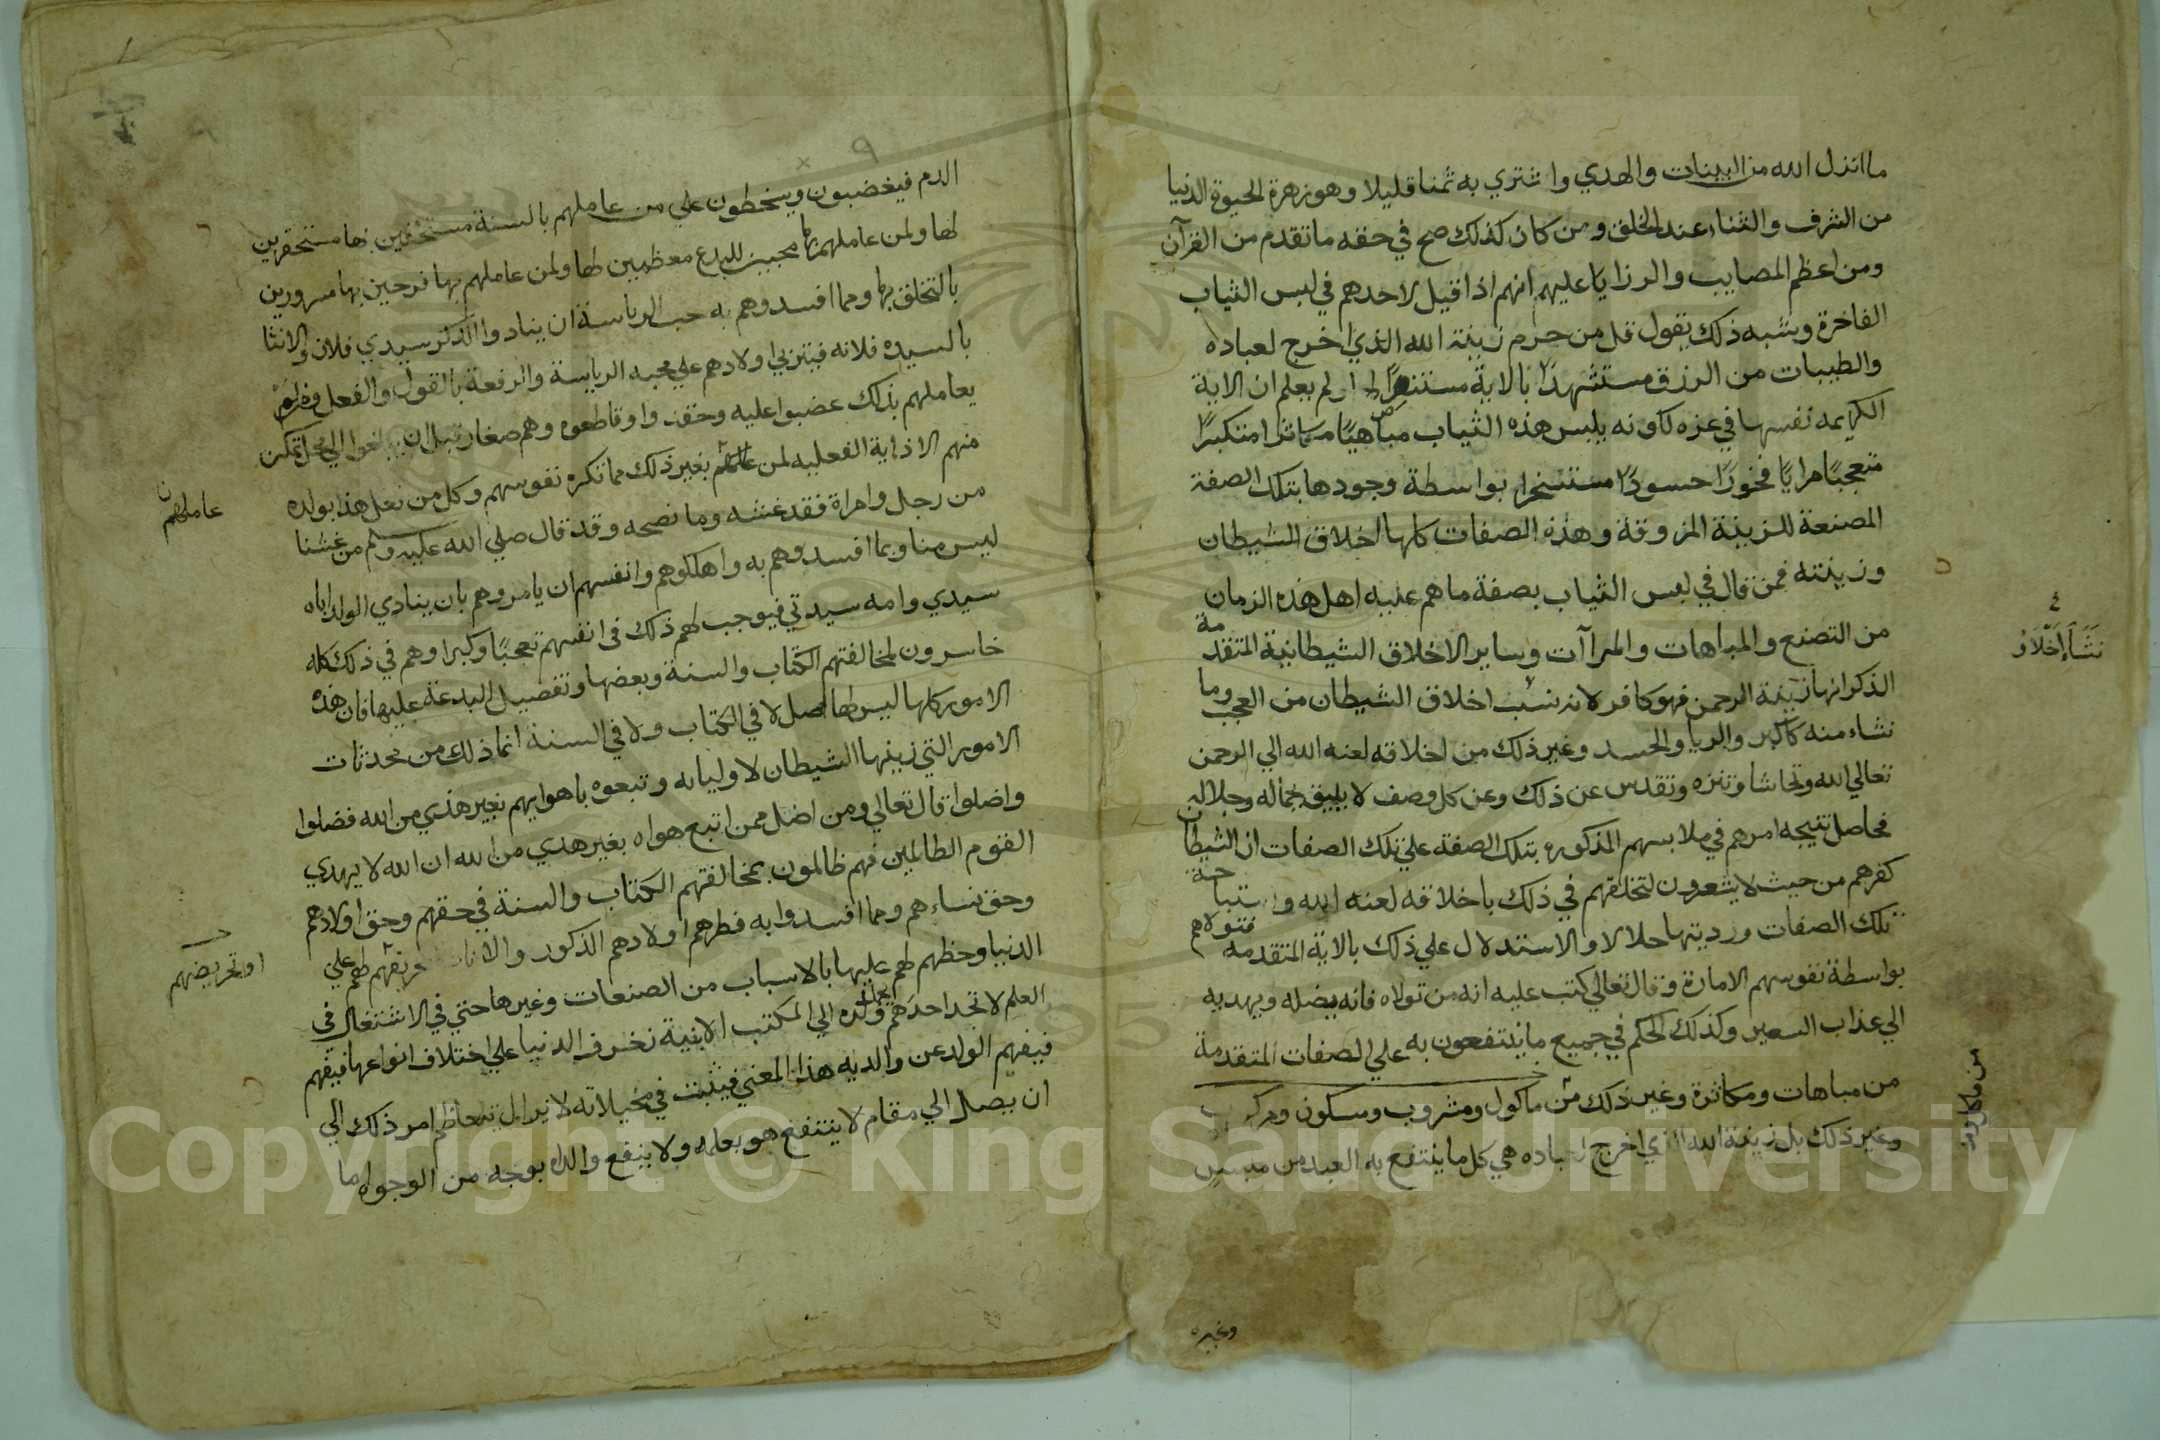 ما انزل الله من البينات والهدي واشتري به ثمنا قليلا وهو زهرة الحيوة الدنيا
من الشرف والثناء عند الخلق ومن كان كذلك صح في حقه ما تقدم من القرآن
ومن اعظم المصايب والرزايا عليهم انهم اذا قيل لاحدهم في لبس الثياب
الفاخرة وشبه ذلك يقول قل من حرم زينة الله الذي اخرج لعباده
والطيبات من الرزق مستشهدا بالاية او لم يعلم ان الاية
الكريمه نفسها في عزه لكونه يلبس هذه الثياب مباهيًا متكبرًا
متعجبًا مرايًا فخورًا حسودًا بواسطة وجودها بتلك الصفة
المصنعة للزينة المزوقة وهذه الصفات كلها اخلاق الشيطان
وزينته فمن قال في لبس الثياب بصفة ما هم عليه اهل هذه الزمان
من التصنع والمباهات والمراآت وساير الاخلاق الشيطانية المتقدمة
الذكر انها زينة الرحمن فهو كافر لانه نسب اخلاق الشيطان من العجب وما
نشاء منه كالكبر والريا والحسد وغير ذلك من اخلاقه لعنه الله الي الرحمن
تعالي الله وتحاشا وتنزه وتقدس عن ذلك وعن كل وصف لا يليق بجماله وجلاله
فحاصل نتيجه امرهم في ملابسهم المذكوره بتلك الصفة علي تلك الصفات ان الشيطان
كفرهم من حيث لا يشعرون لتخلقهم في ذلك باخلاقه لعنه الله واستباحة
تلك الصفات ورديتها حلالا والاستدلال علي ذلك بالاية المتقدمه فتولاهم
بواسطة نفوسهم الامارة وقال تعالي كتب عليه انه من تولاه فانه يضله ويهديه
الي عذاب السعير وكذلك الحكم في جميع ما ينتفعون به علي الصفات المتقدمة
من مباهات ومكاثرة وغير ذلك من ماكول ومشروب ومسكون
وغير ذلك بل زينة الله الذي اخرج لعباده هي كل ما ينتفع به العبد من
وغيره
الدم فيغضبون ويسخطون علي من عاملهم بالسنة بها مستحقرين
لها ولمن عاملهم بها محبين للبدع معظمين لها ولمن عاملهم بها فرحين بها مسرورين
بالتخلق بها ومما افسدوهم به حب الرياسة ان ينادوا الذكر سيدي فلان والانثا
بالسيده فلانه فيتربي اولادهم علي محبه الرياسة والرفعة بالقول والفعل
يعاملهم بذلك غضبوا عليه وحقدوا وقاطعوه وهم صغار قبل ان يبلغوا الي محل تمكن
منهم الاذاية الفعليه لمن بغير ذلك مما تكره نفوسهم وكل من فعل هذا بولده
عاملهم
من رجل وامراة فقد غشه وما نصحه وقد قال صلي الله عليه وسلم من غشنا
ليس منا وبما افسدوهم به واهلكوهم وانفسهم ان يامروهم بان ينادي الولد اباه
سيدي وامه سيدتي فيوجب لهم ذلك في انفسهم تعجبًا وكبرا وهم في ذلك كله
خاسرون لمخالفتهم الكتاب والسنة وبعضها وتفضيل البدعة عليها فان هذه
الامور كلها ليس لها اصل لا في الكتاب ولا في السنة انما ذلك من محدثات
الامور التي زينها الشيطان لاوليايه وتبعوه باهوايهم بغير هدي من الله فضلوا
واضلوا قال تعالي ومن اضل ممن اتبع هواه بغير هدي من الله ان الله لا يهدي
القوم الظالمين فهم ظالمون بمخالفتهم الكتاب والسنة في حقهم وحق اولادهم
وحق نساءهم ومما افسدوا به فطرهم اولادهم الذكور والاناث علي
او تحريضهم
الدنيا وحظهم لهم عليها بالاسباب من الصنعات وغيرها حتي في الاشتغال في
العلم لا تجد احدهم ولده الي المكتب الا بنية زخرف الدنيا علي اختلاف انواعها فيفهم
فيفهم الولد عن والديه هذا المعني فيثبت في مخيلاته لا يزال يتعاظم امر ذلك الي
ان يصل الي مقام لا ينتفع هو بعلمه ولا ينفع والداه بوجه من الوجوه اما